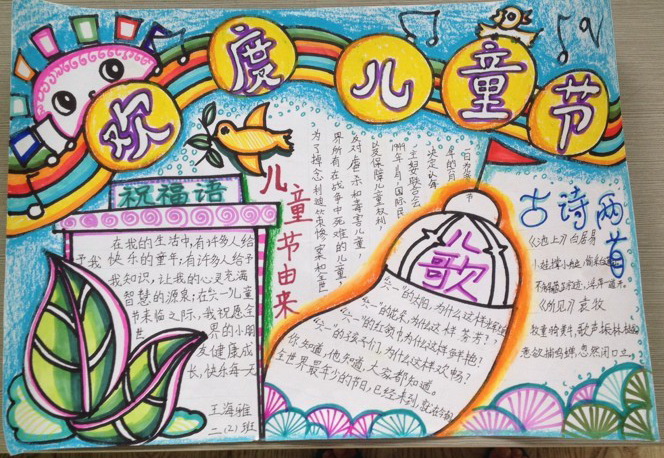 欢度儿童节
祝福语
在我的生活中,有许多人给
予我快乐的童年;有许多人给予
我知识,让我的心灵充满
智慧的源泉;在六一儿童
节来临之际,我祝愿全
世界的小朋
友健康成
长,快乐每一天
王海雅
二(2)班
儿童节由来
为了悼念利迪策惨案和全世
界所有在战争中死难的儿童,
反对虐杀和毒害儿童,
以及保障儿童权利,
1949年11月,国际民
主妇女联合会
决定以每
年的六月
一日为
儿歌
"六一"的太阳,为什么这样
"六一"的花朵,为什么这样芬芳?
"六一"的红领巾为什么这样鲜艳?
"六一"的孩子们,为什么这样欢畅?
你知道,他知道,大家都知道。
全世界最年少的节日,已经来到
古诗两首
《池上》白居易
小娃撑小艇,偷采白莲
不解藏踪迹,浮萍一道开
《所见》袁牧
牧童骑黄牛,歌声振林樾
意欲捕鸣蝉,忽然闭口立